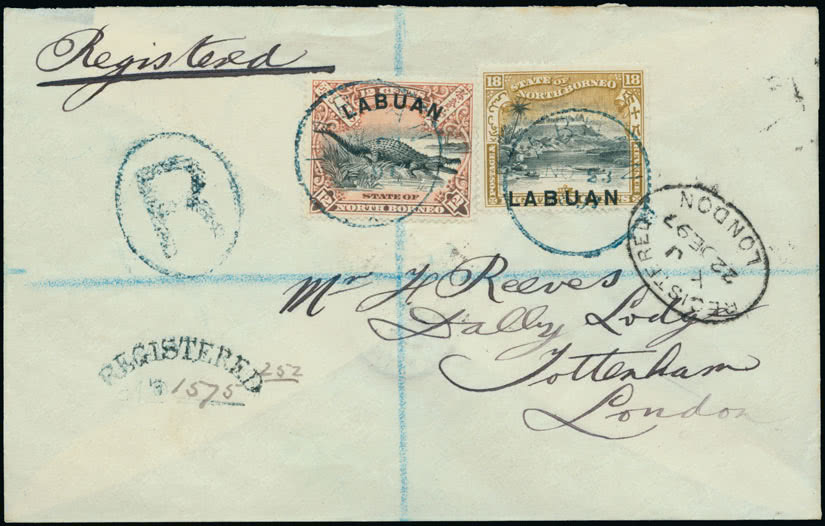 Registered
LABUAN
12
STATE OF
NORTH BORNEO
18
STATE OF
NORTH BORNEO
18
POSTAGE &
LABUAN
R
REGISTERED
LONDON
22 DE 97
Mr H Reeves
Dally Lodge
Tottenham
London
REGISTERED
1575
252